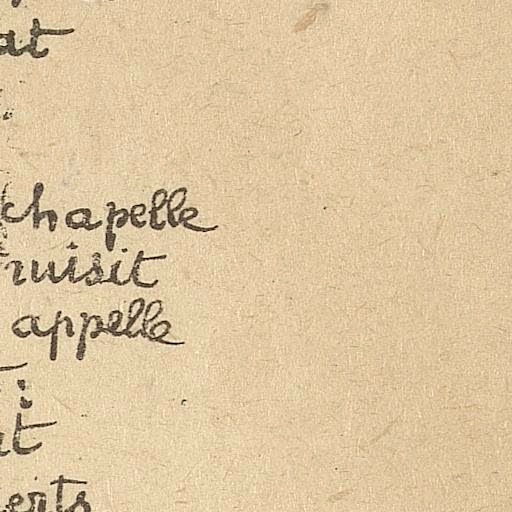 at
chapelle
ruisit
appelle
:
t
erts